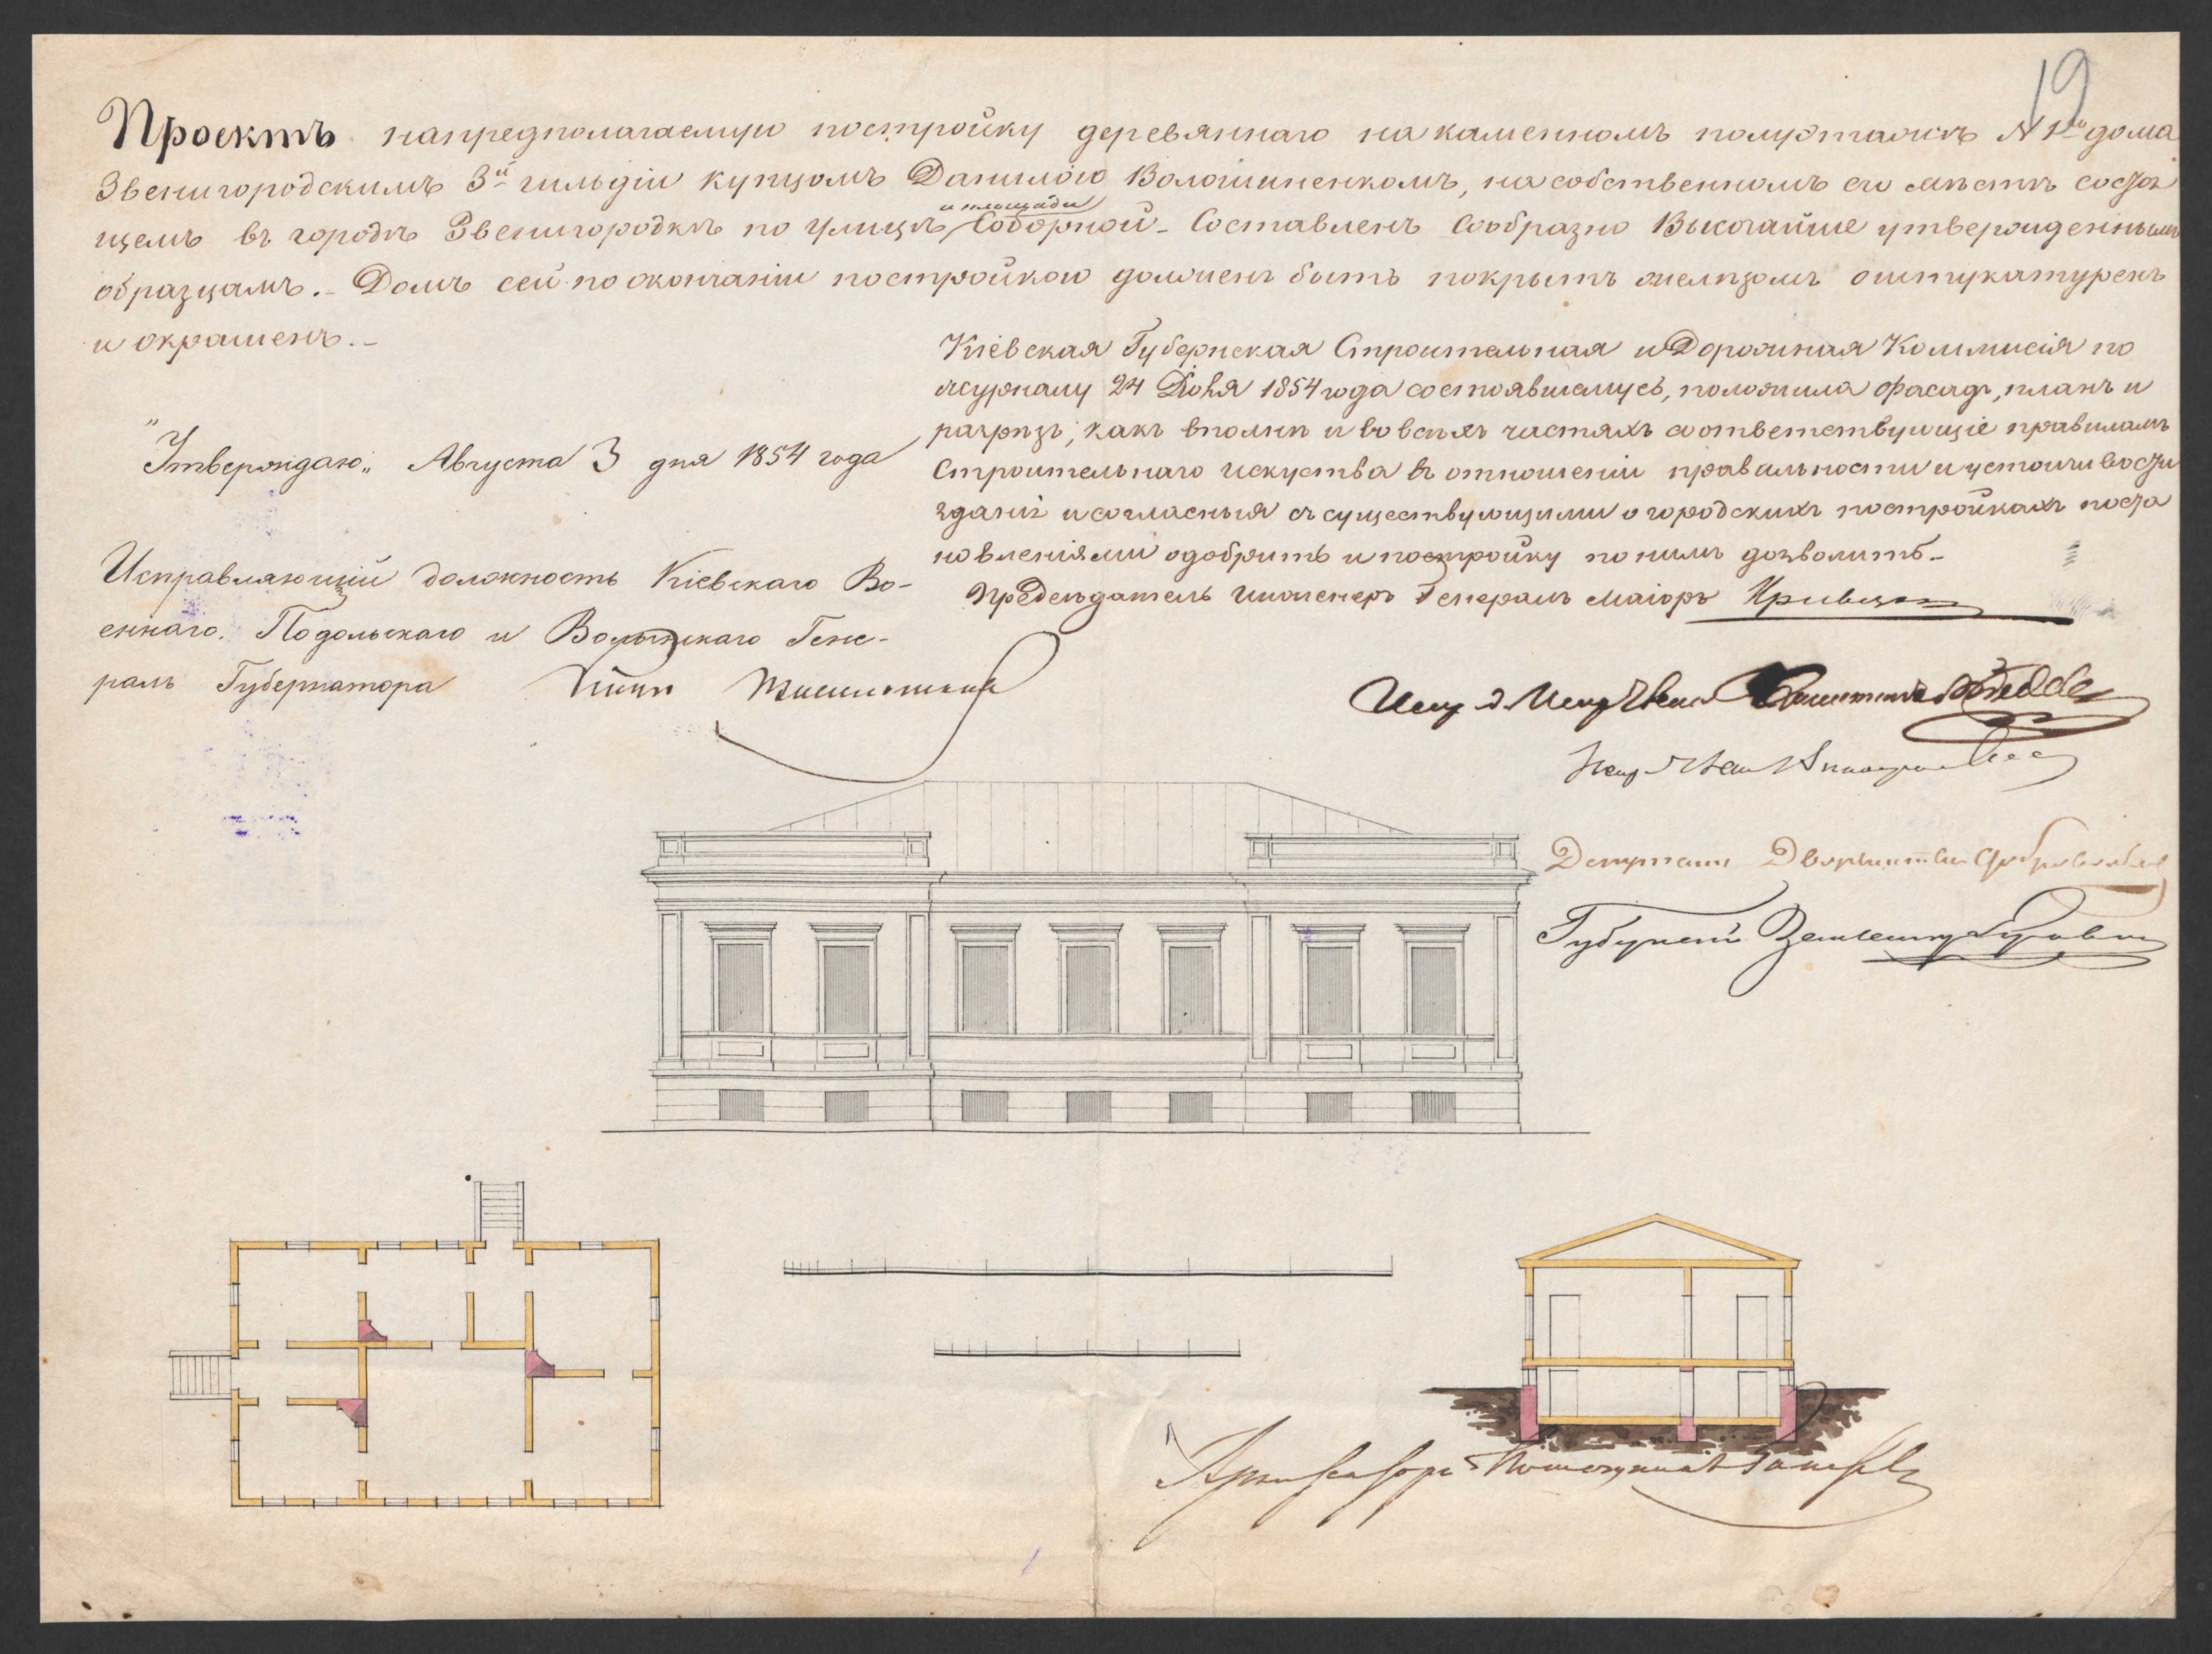 19
Проектъ на предполагаемую постройку деревяннаго на каменномъ полуэтажѣ N 1го дома
Звенигородскимъ 3й гильдіи купцомъ Данилою Волошиненкомъ, на собственномъ его мѣстѣ состоя
щемъ въ городѣ Звенигородкѣ по улицѣ и площади Соборной - Составленъ сообразно Высочайше утвержденнымъ
образцамъ. - Домъ сей по окончаніи постройкою долженъ быть покрытъ желѣзомъ оштукатуренъ
и окрашенъ. -
Кіевская Губернская Строительная и Дорожная Коммисія по
журналу 24 Іюня 1854 года состоявшемуся, положила фасадъ, планъ и
разрѣзъ, какъ вполнѣ и во всѣхъ частяхъ соответствующіе правиламъ
Строительнаго искуства въ отношеніи правильности и устоичивости
зданій и согласныя съ существующими о городскихъ постройкахъ поста
новленіями одобрить и постройку по нимъ дозволить. -
Предсѣдатель Инженеръ Генералъ Маіоръ
"Утверждаю" Августа 3 дня 1854 года
Исправляющій должность Кіевскаго Во-
еннаго. Подольскаго и Волынскаго Гене-
ралъ Губернатора
Депутатъ Дворянства
Губернскій Землемѣръ
Архитекторъ Помощникъ